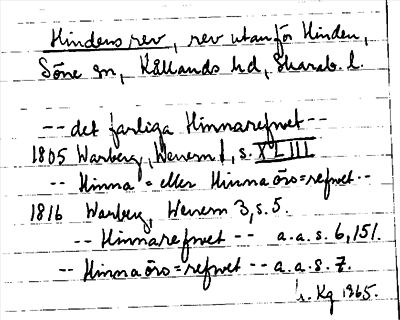 Hindens rev, rev utanför Hinden,
Söne sn, Kållands hd, Skarab. l.
-- det farliga Hinnarefwet --
1805 Warberg, Wenern 1, s. XLIII
-- Hinna= eller Hinnaörs=refwet --
1816 Warberg, Wenern 3, s. 5.
-- Hinnarefwet -- a.a.s. 6, 151.
-- Hinnaörs=refwet -- a.a.s. 7.
Kg 1965.